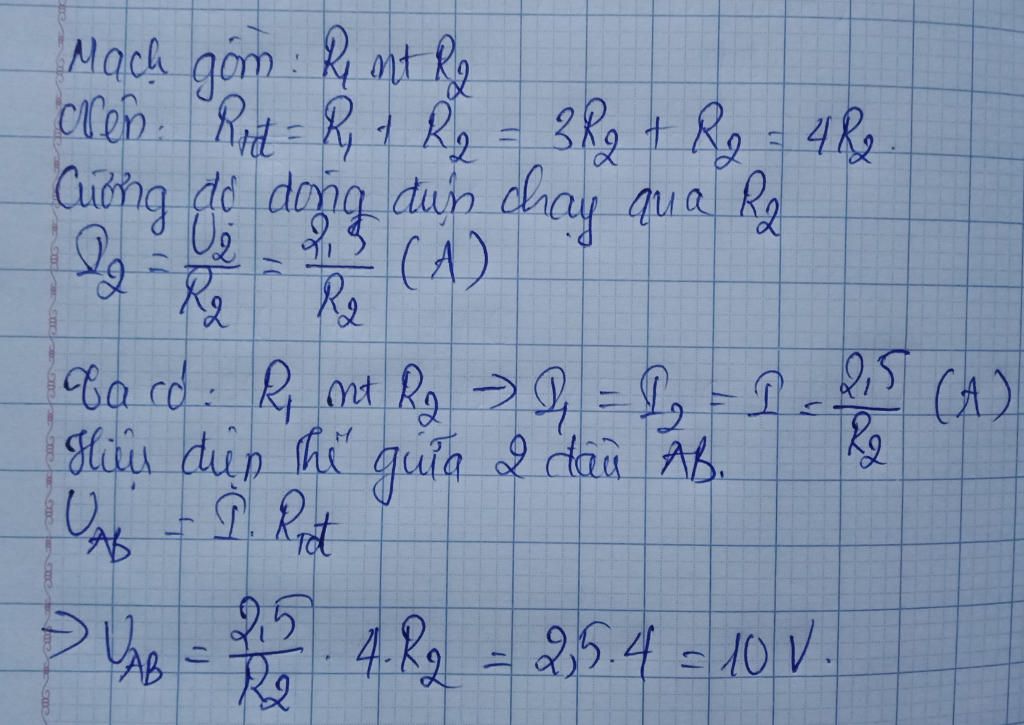 Mạch gồm: R₁ nt R₂
Nên: Rtđ = R₁ + R₂ = 3R₂ + R₂ = 4R₂.
Cường độ dòng điện chạy qua R₂
I₂ = U₂/R₂ = 2,5/R₂ (A)
Ta có: R₁ nt R₂ → I₁ = I₂ = I = 2,5/R₂ (A)
Hiệu điện thế giữa 2 đầu AB.
U_AB = I. Rtđ
⇒ U_AB = 2,5/R₂ . 4.R₂ = 2,5.4 = 10 V.